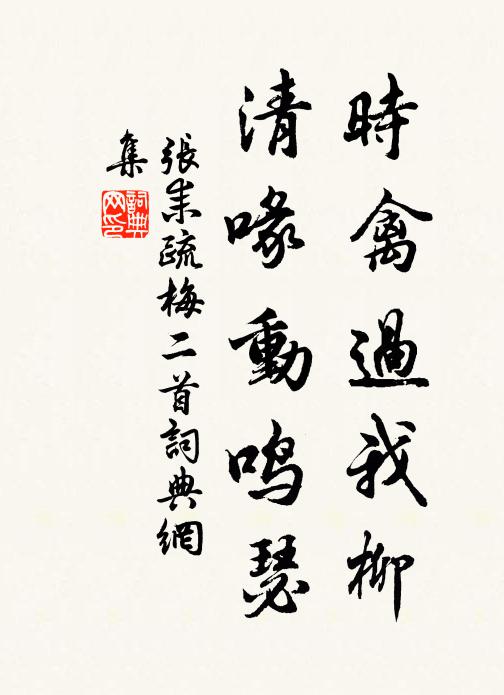 時禽過我柳
清喙動鳴瑟
張耒疏梅二首詞典網
集
詞典
网印